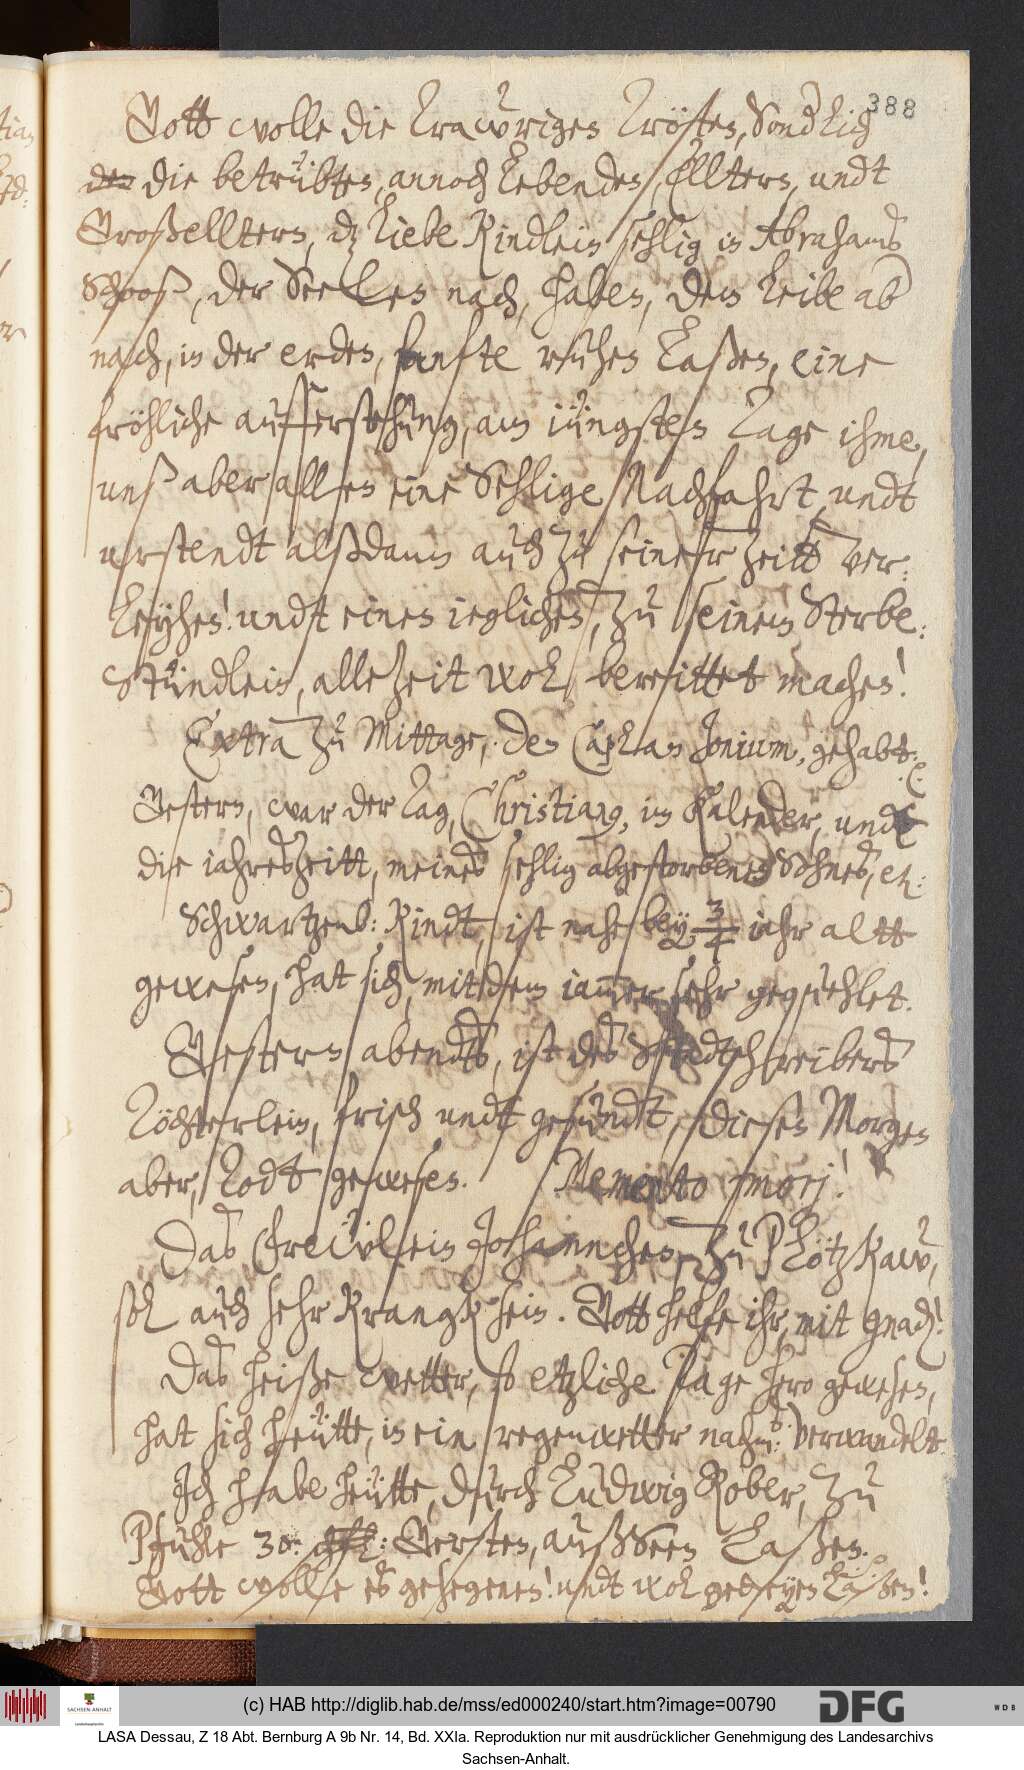 388
Gott wolle die Trawrigen Trösten, Sond[er]lich
den die betrübten, annoch Lebenden, Ellltern, undt
Großellltern, dz Liebe Kindlein sehlig in Abrahams
Schooß, der Seelen nach, haben, dem Leibe ab[er]
nach, in der erden, sanfte ruhen Laßen, eine
fröhliche aufferstehung, am iüngsten Tage ihme,
unß aber allen eine Sehlige Nachfahrt, undt
urstendt alßdann auch zu seiner Zeitt ver:
Leyhen! undt einen ieglichen, zu seinem Sterbe:
Stündlein, allezeit wol bereittet machen!
Extra zu Mittage, den Caplan Jonium, gehabt.
Gestern, war der Tag, Christiany, im Kalender, undt
die iahreszeitt, meines sehlig abgestorbenen Sohnes, etc:
Schwartzenb: Kindt, ist nahe bey 3/4 iahr altt
gewesen, hat sich, mit dem iammer sehr gequehlet.
Gestern abendts, ist des Stadtschreibers
Töchterlein, frisch undt gesundt, diesen Morgen
aber, Todt gewesen. Memento mori!
Das Frewlein Johannchen, zu Plötzkaw,
sol auch sehr Krangk sein. Gott helfe ihr, mit gnad[en]!
Das heiße wetter, so etzliche Tage hero gewesen,
hat sich heütte, in ein regenwetter nachm: verwandelt.
Ich habe heütte, durch Ludwig Rober, zu
Pfuhle 30: Gersten, auß Seen Laßen.
Gott wolle es gesegenen! undt wol gedeyen Laßen!
(c) HAB http://diglib.hab.de/mss/ed000240/start.htm?image=00790
SACHSEN-ANHALT
DFG
WDB
LASA Dessau, Z 18 Abt. Bernburg A 9b Nr. 14, Bd. XXIa. Reproduktion nur mit ausdrücklicher Genehmigung des Landesarchivs
Sachsen-Anhalt.